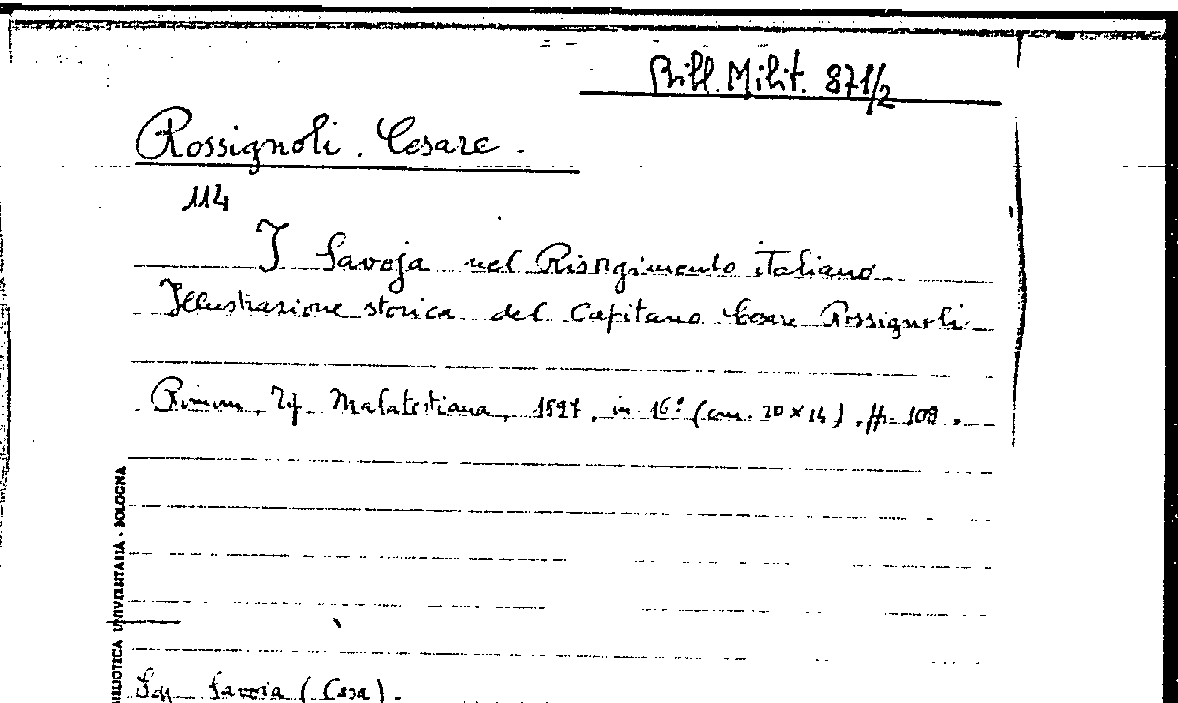 Bibl. Milit. 871/2
Rossignoli. Cesare.
114
I Savoja nel Risorgimento italiano
Illustrazione storica del Capitano Cesare Rossignoli
Rimini, Tip. Malatestiana, 1897, in 16º (cm. 20 x 14). pp. 109.
BIBLIOTECA UNIVERSITARIA - BOLOGNA
Savoia (Casa).